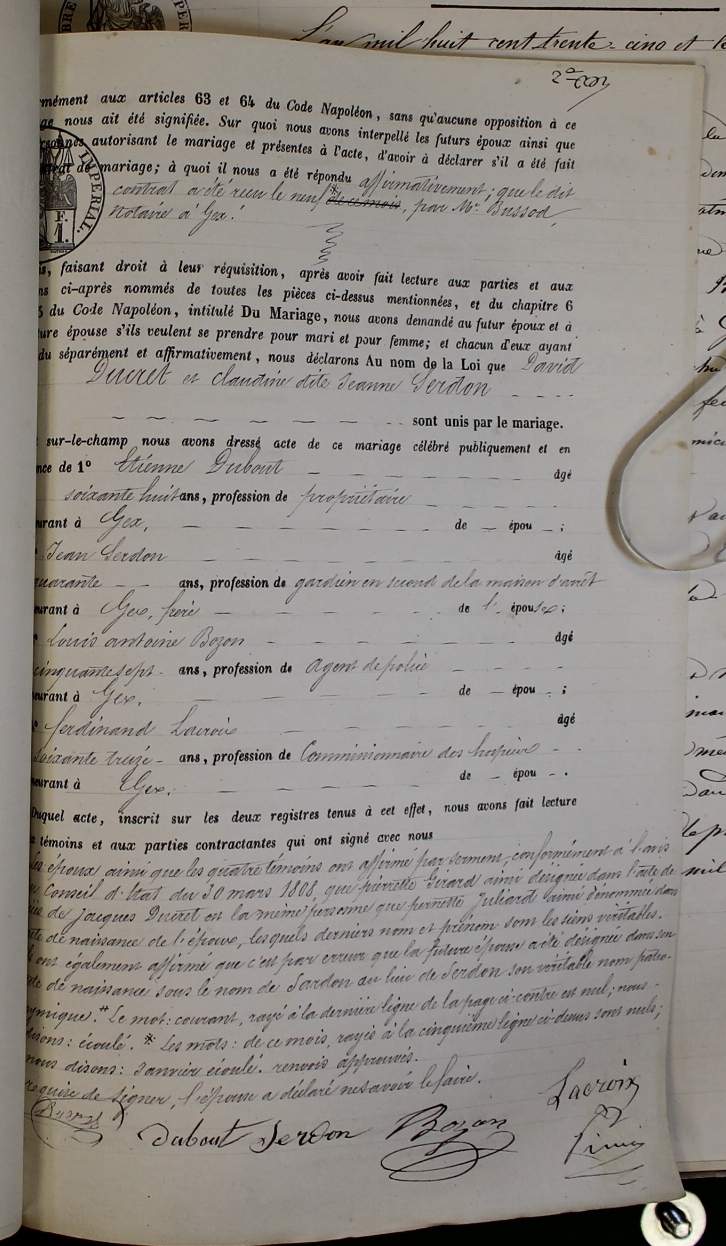 L'an mil huit cent trente-cinq et
mément aux articles 63 et 64 du Code Napoléon, sans qu'aucune opposition à ce
nous ait été signifiée. Sur quoi nous avons interpellé les futurs époux ainsi que
autorisant le mariage et présentes à l'acte, d'avoir à déclarer s'il a été fait
de mariage; à quoi il nous a été répondu affirmativement; que le dit
contrat a été reçu le neuf * de ce mois, par Me. Bussod,
notaire à Gex.
IMPERIAL
F.
1.
, faisant droit à leur réquisition, après avoir fait lecture aux parties et aux
ns ci-après nommés de toutes les pièces ci-dessus mentionnées, et du chapitre 6
5 du Code Napoléon, intitulé Du Mariage, nous avons demandé au futur époux et à
ture épouse s'ils veulent se prendre pour mari et pour femme; et chacun d'eux ayant
du séparément et affirmativement, nous déclarons Au nom de la Loi que David
Ducret et Claudine dite Jeanne Serdon
sont unis par le mariage.
sur-le-champ nous avons dressé acte de ce mariage célébré publiquement et en
nce de 1° Etienne Dubout âgé
soixante huit ans, profession de propriétaire
eurant à Gex, de — épou — ;
Jean Serdon âgé
quarante ans, profession de gardien en second de la maison d'arrêt
eurant à Gex, frère de l' épouse ;
° Louis antoine Bozon âgé
cinquante sept ans, profession de agent de police
eurant à Gex, de — épou — ;
° ferdinand Lacroix âgé
soixante treize ans, profession de Commissionnaire des hospices
meurant à Gex. de — épou — .
Duquel acte, inscrit sur les deux registres tenus à cet effet, nous avons fait lecture
témoins et aux parties contractantes qui ont signé avec nous
Les époux ainsi que les quatre témoins ont affirmé par serment, conformément à l'avis
Conseil d'Etat du 30 mars 1808, que pierrette Girard ainsi désignée dans l'acte de
de jacques Ducret est la même personne que pernette Juliard ainsi dénommée dans
de naissance de l'époux, lesquels derniers nom et prénom sont les siens véritables.
ont également affirmé que c'est par erreur que la future épouse a été désignée dans son
acte de naissance sous le nom de Sardon au lieu de Serdon son véritable nom patro-
nymique. # Le mot: courant, rayé à la dernière ligne de la page ci-contre est nul; nous
disons: écoulé. * Les mots: de ce mois, rayés à la cinquième ligne ci-dessus sont nuls;
nous disons: Janvier écoulé. renvois approuvés.
requise de signer, l'épouse a déclaré ne savoir le faire.
Ducret
Dubout Serdon Bozon Lacroix